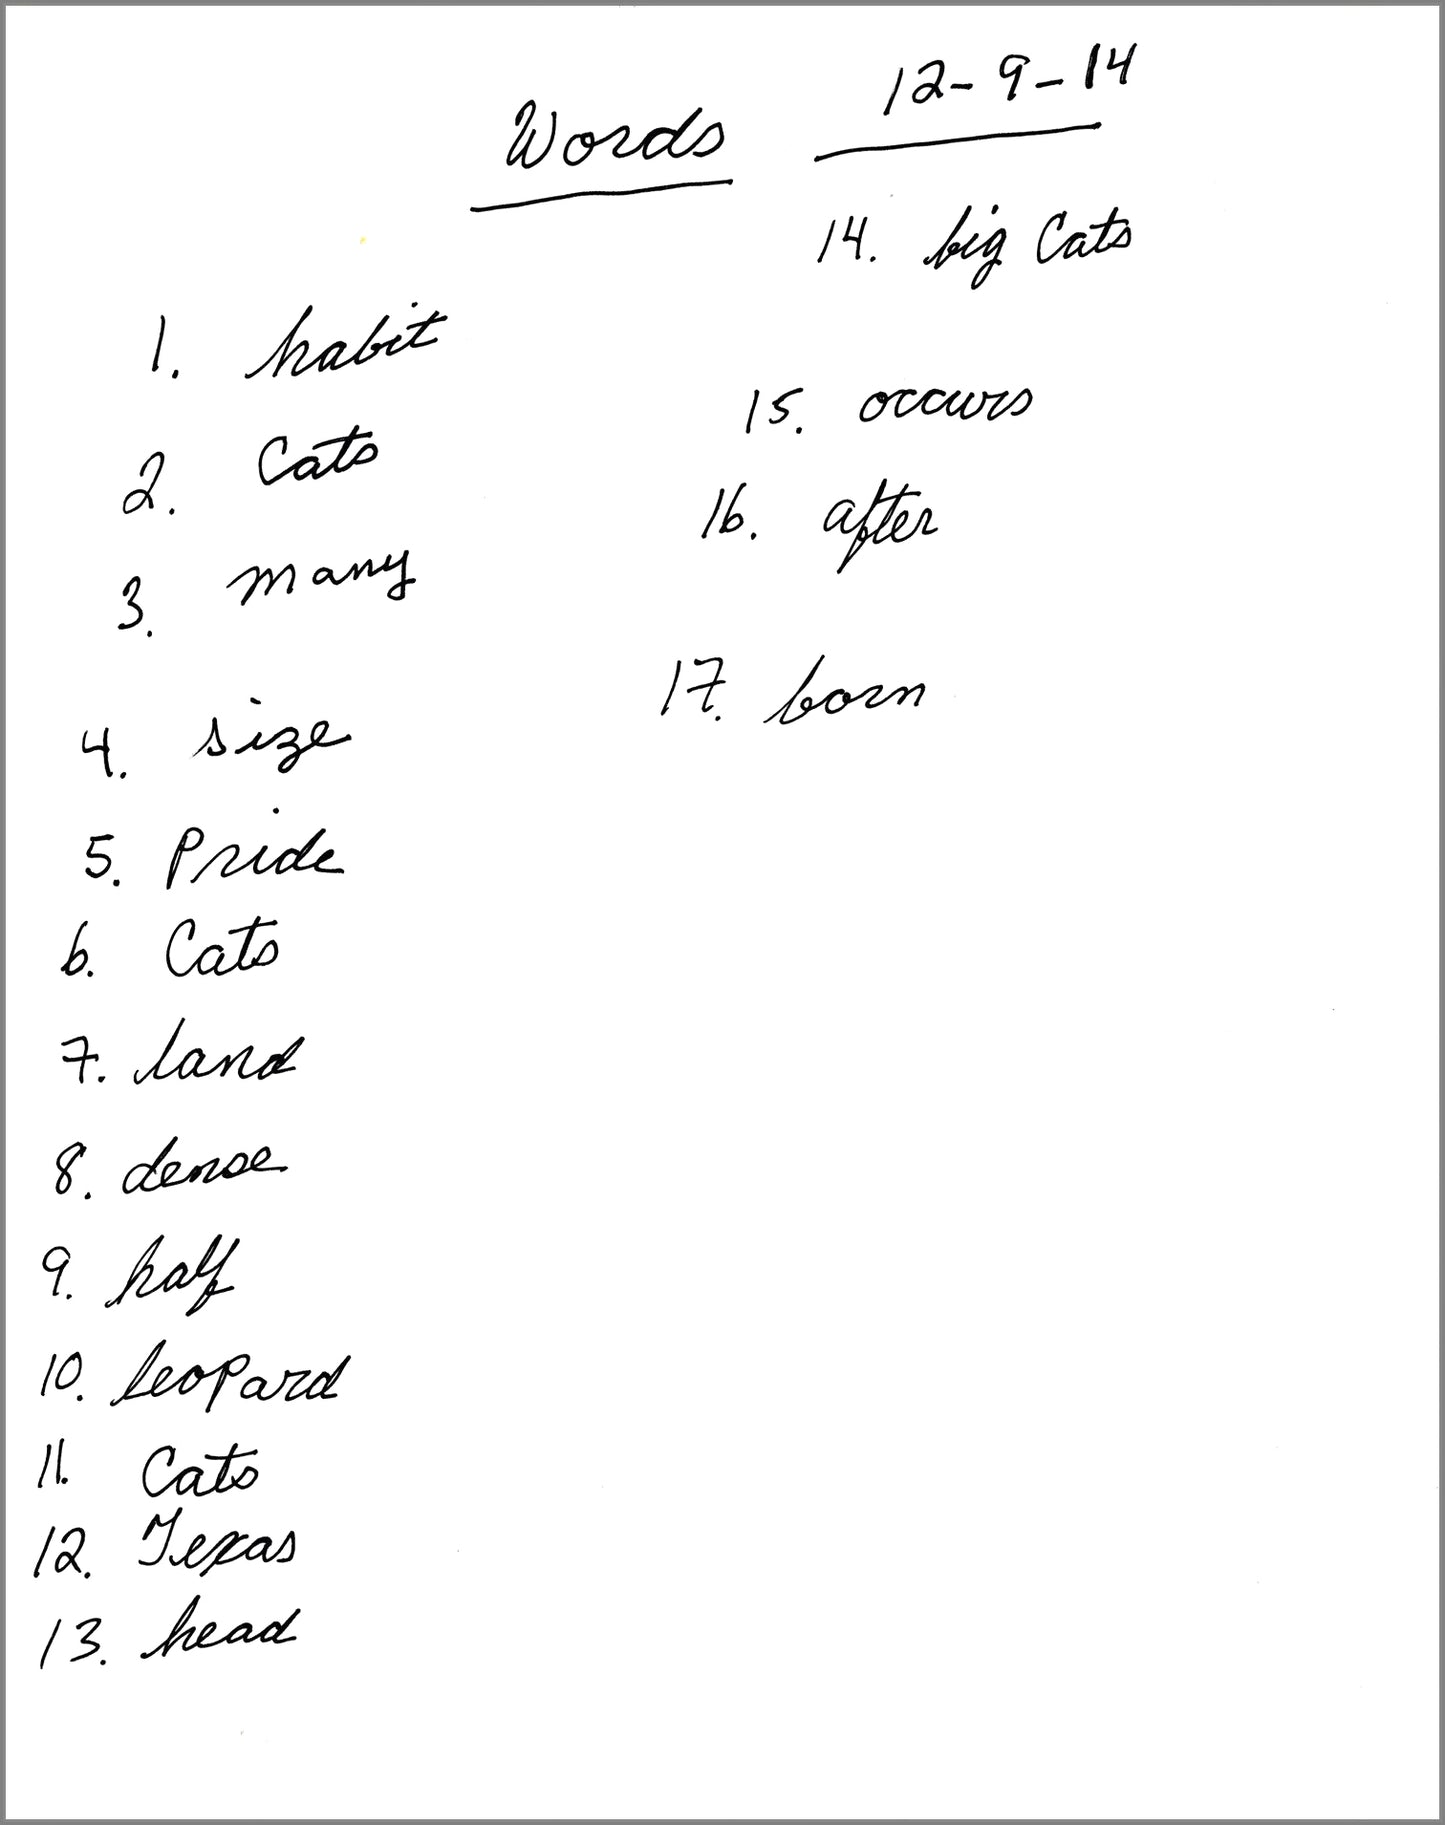 Words 12-9-14
1. habit
2. Cats
3. many
4. size
5. Pride
6. Cats
7. land
8. dense
9. half
10. leopard
11. Cats
12. Texas
13. head
14. big Cats
15. occurs
16. after
17. born